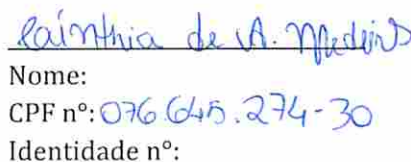 Cainthia de A. Medeiros
Nome:
CPF nº: 076.645.274-30
Identidade nº: